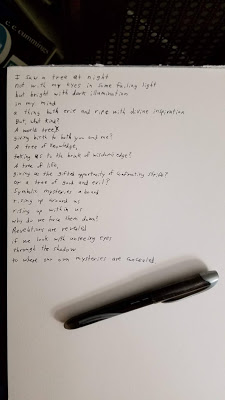 e e cummings
I saw a tree at night
not with my eyes in some failing light
but bright with dark illumination
in my mind
a thing both erie and ripe with divine inspiration
But, what kind?
A world tree
giving birth to both you and me?
A tree of knowledge,
taking us to the brink of wisdoms edge?
A tree of life,
giving us the gifted opportunity of confronting strife?
Or a tree of good and evil?
Symbolic mysteries abound
rising up around us
rising up within us
why do we hose them down?
Revelations are revealed
if we look with unseeing eyes
through the shadow
to where our own mysteries are concealed